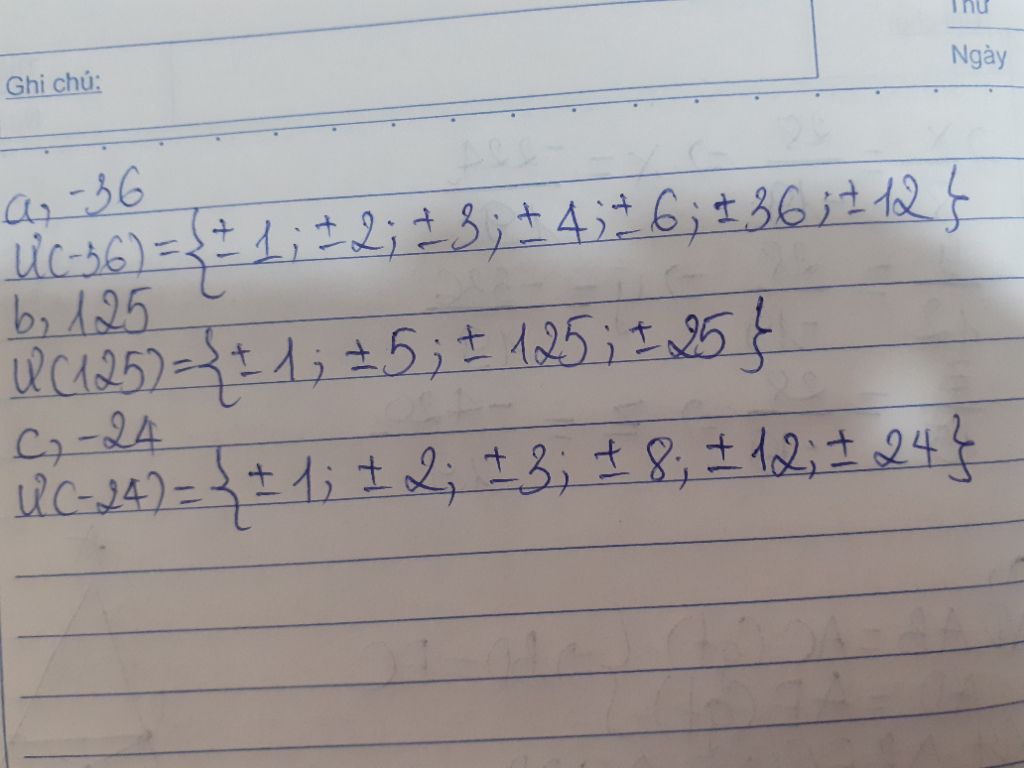 Thứ
Ghi chú:
Ngày
a, -36
Ư(-36) = {± 1; ± 2; ± 3; ± 4; ± 6; ± 36; ± 12}
b, 125
Ư(125) = {± 1; ± 5; ± 125; ± 25}
c, -24
Ư(-24) = {± 1; ± 2; ± 3; ± 8; ± 12; ± 24}